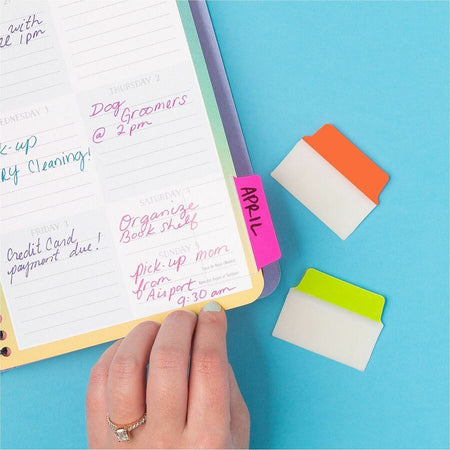 with
1pm
THURSDAY 2
Dog
Groomers
@ 2pm
WEDNESDAY 1
k-up
ry Cleaning!
SATURDAY 4
Organize
Book shelf
FRIDAY 3
Credit Card
payment due!
SUNDAY
Pick-up mom
from
Airport
9:30 am
APRIL